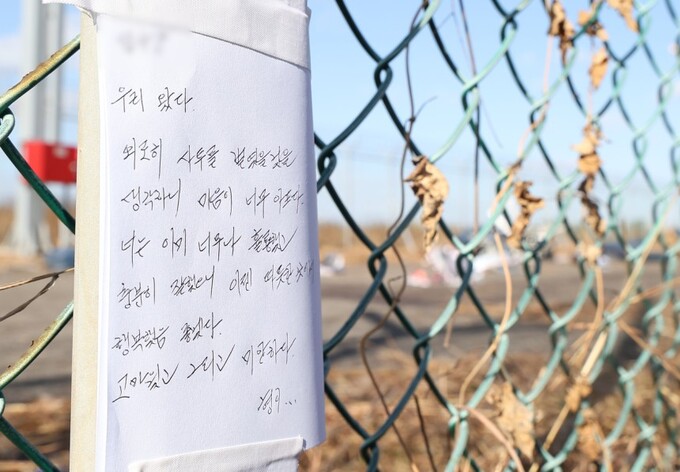 우리 왔다.
외로히 사투를 벌였을것을
생각하니 마음이 너무 아프다.
너는 이미 너무나 훌륭했고
충분히 잘했으니 이젠 따뜻한
행복했음 좋겠다.
고마웠고 그리고 미안하다
형이...